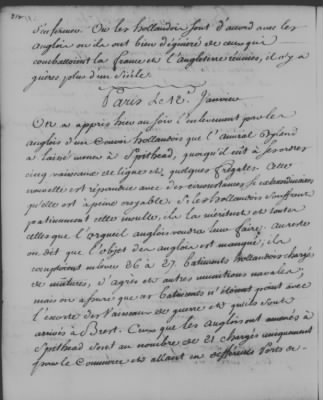 s'enfoncer. Ou les hollandois sont d'accord avec les
anglois ou ils ont bien dégénéré de ceux qui
combattoient la france et l'angleterre réunies, il n'y a
guères plus d'un siècle.
Paris Le 12. Janvier
On a appris hier au soir l'enlevement par les
anglois d'un Convoi hollandois que l'amiral Byland
a laissé mener à Spithead, quoiqu'il eut à ses ordres
cinq vaisseaux de ligne et quelques frégates. Cette
nouvelle est répandue avec des circonstances si extraordinaires,
qu'elle est à peine croyable. Si les hollandois souffrent
patiemment cette insulte, ils la méritent et toutes
celles que l'orgueil anglois voudra leur faire. au reste
on dit que l'objet des anglois est manqué, ils
comptoient même 26 à 27 batiments hollandois chargés
de mâtures, d'agrès et autres munitions navales,
mais on assure que ces batiments n'étoient point avec
l'escorte des Vaisseaux de guerre et qu'ils sont
arrivés à Brest. Ceux que les anglois ont amenés à
Spithead sont au nombre de 21 chargés uniquement
pour le Commerce et allant en différents Ports de